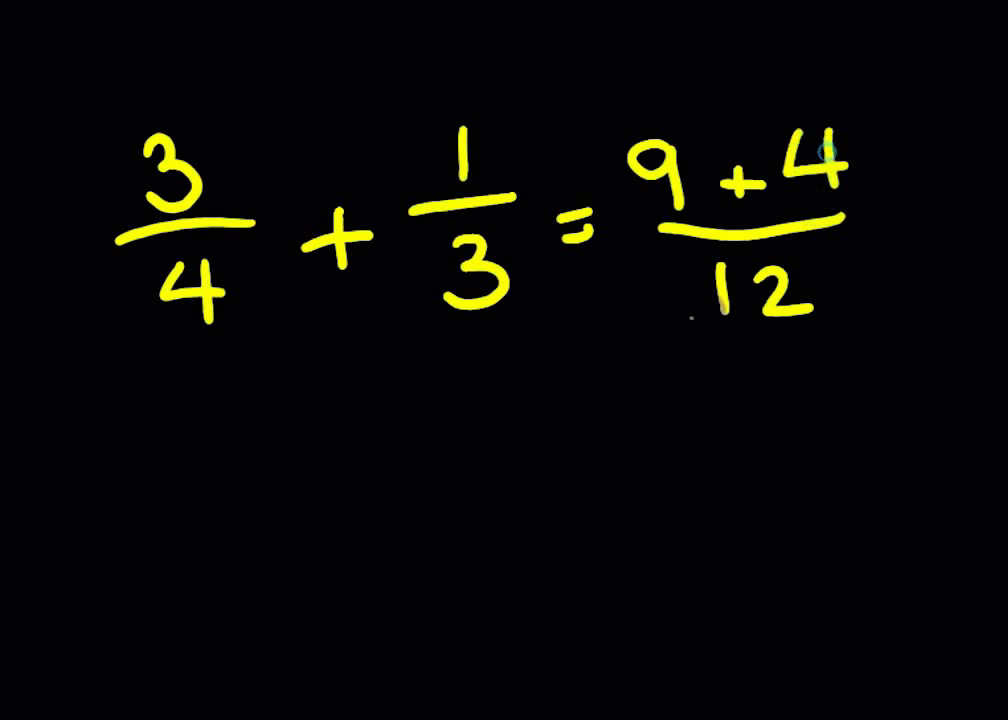 3/4 + 1/3 = 9 + 4/12